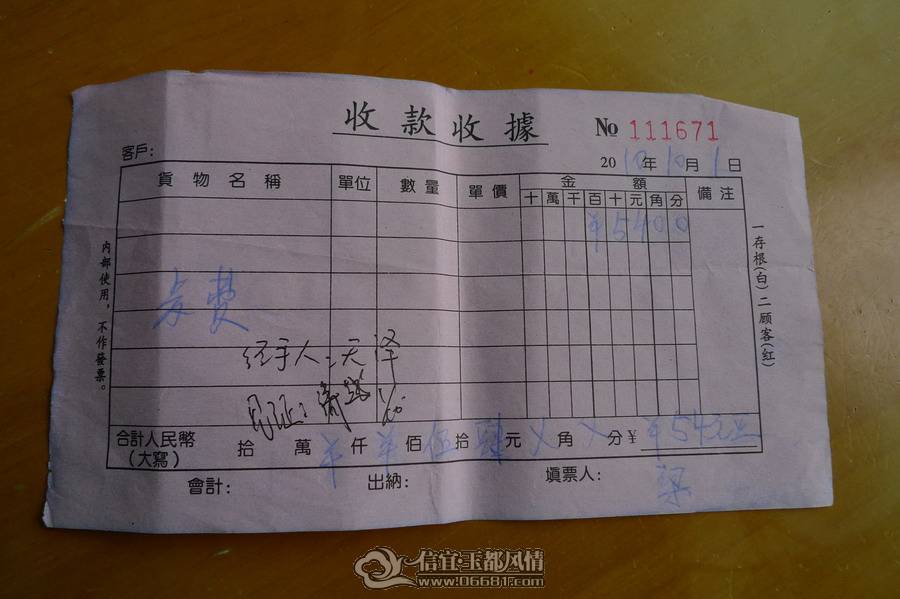 收款收據
No 111671
客戶:
2010年10月1日
貨物名稱 單位 數量 單價 金額 備注
十萬千百十元角分
¥5400
費
经手人:天泽
见证:
合計人民幣(大寫) 拾 萬 仟 佰 伍拾肆元 角 分 ¥54元正
會計: 出納: 填票人:
內部使用,不作發票。
一存根(白)二顾客(红)
信宜·玉都风情
www.06681.com